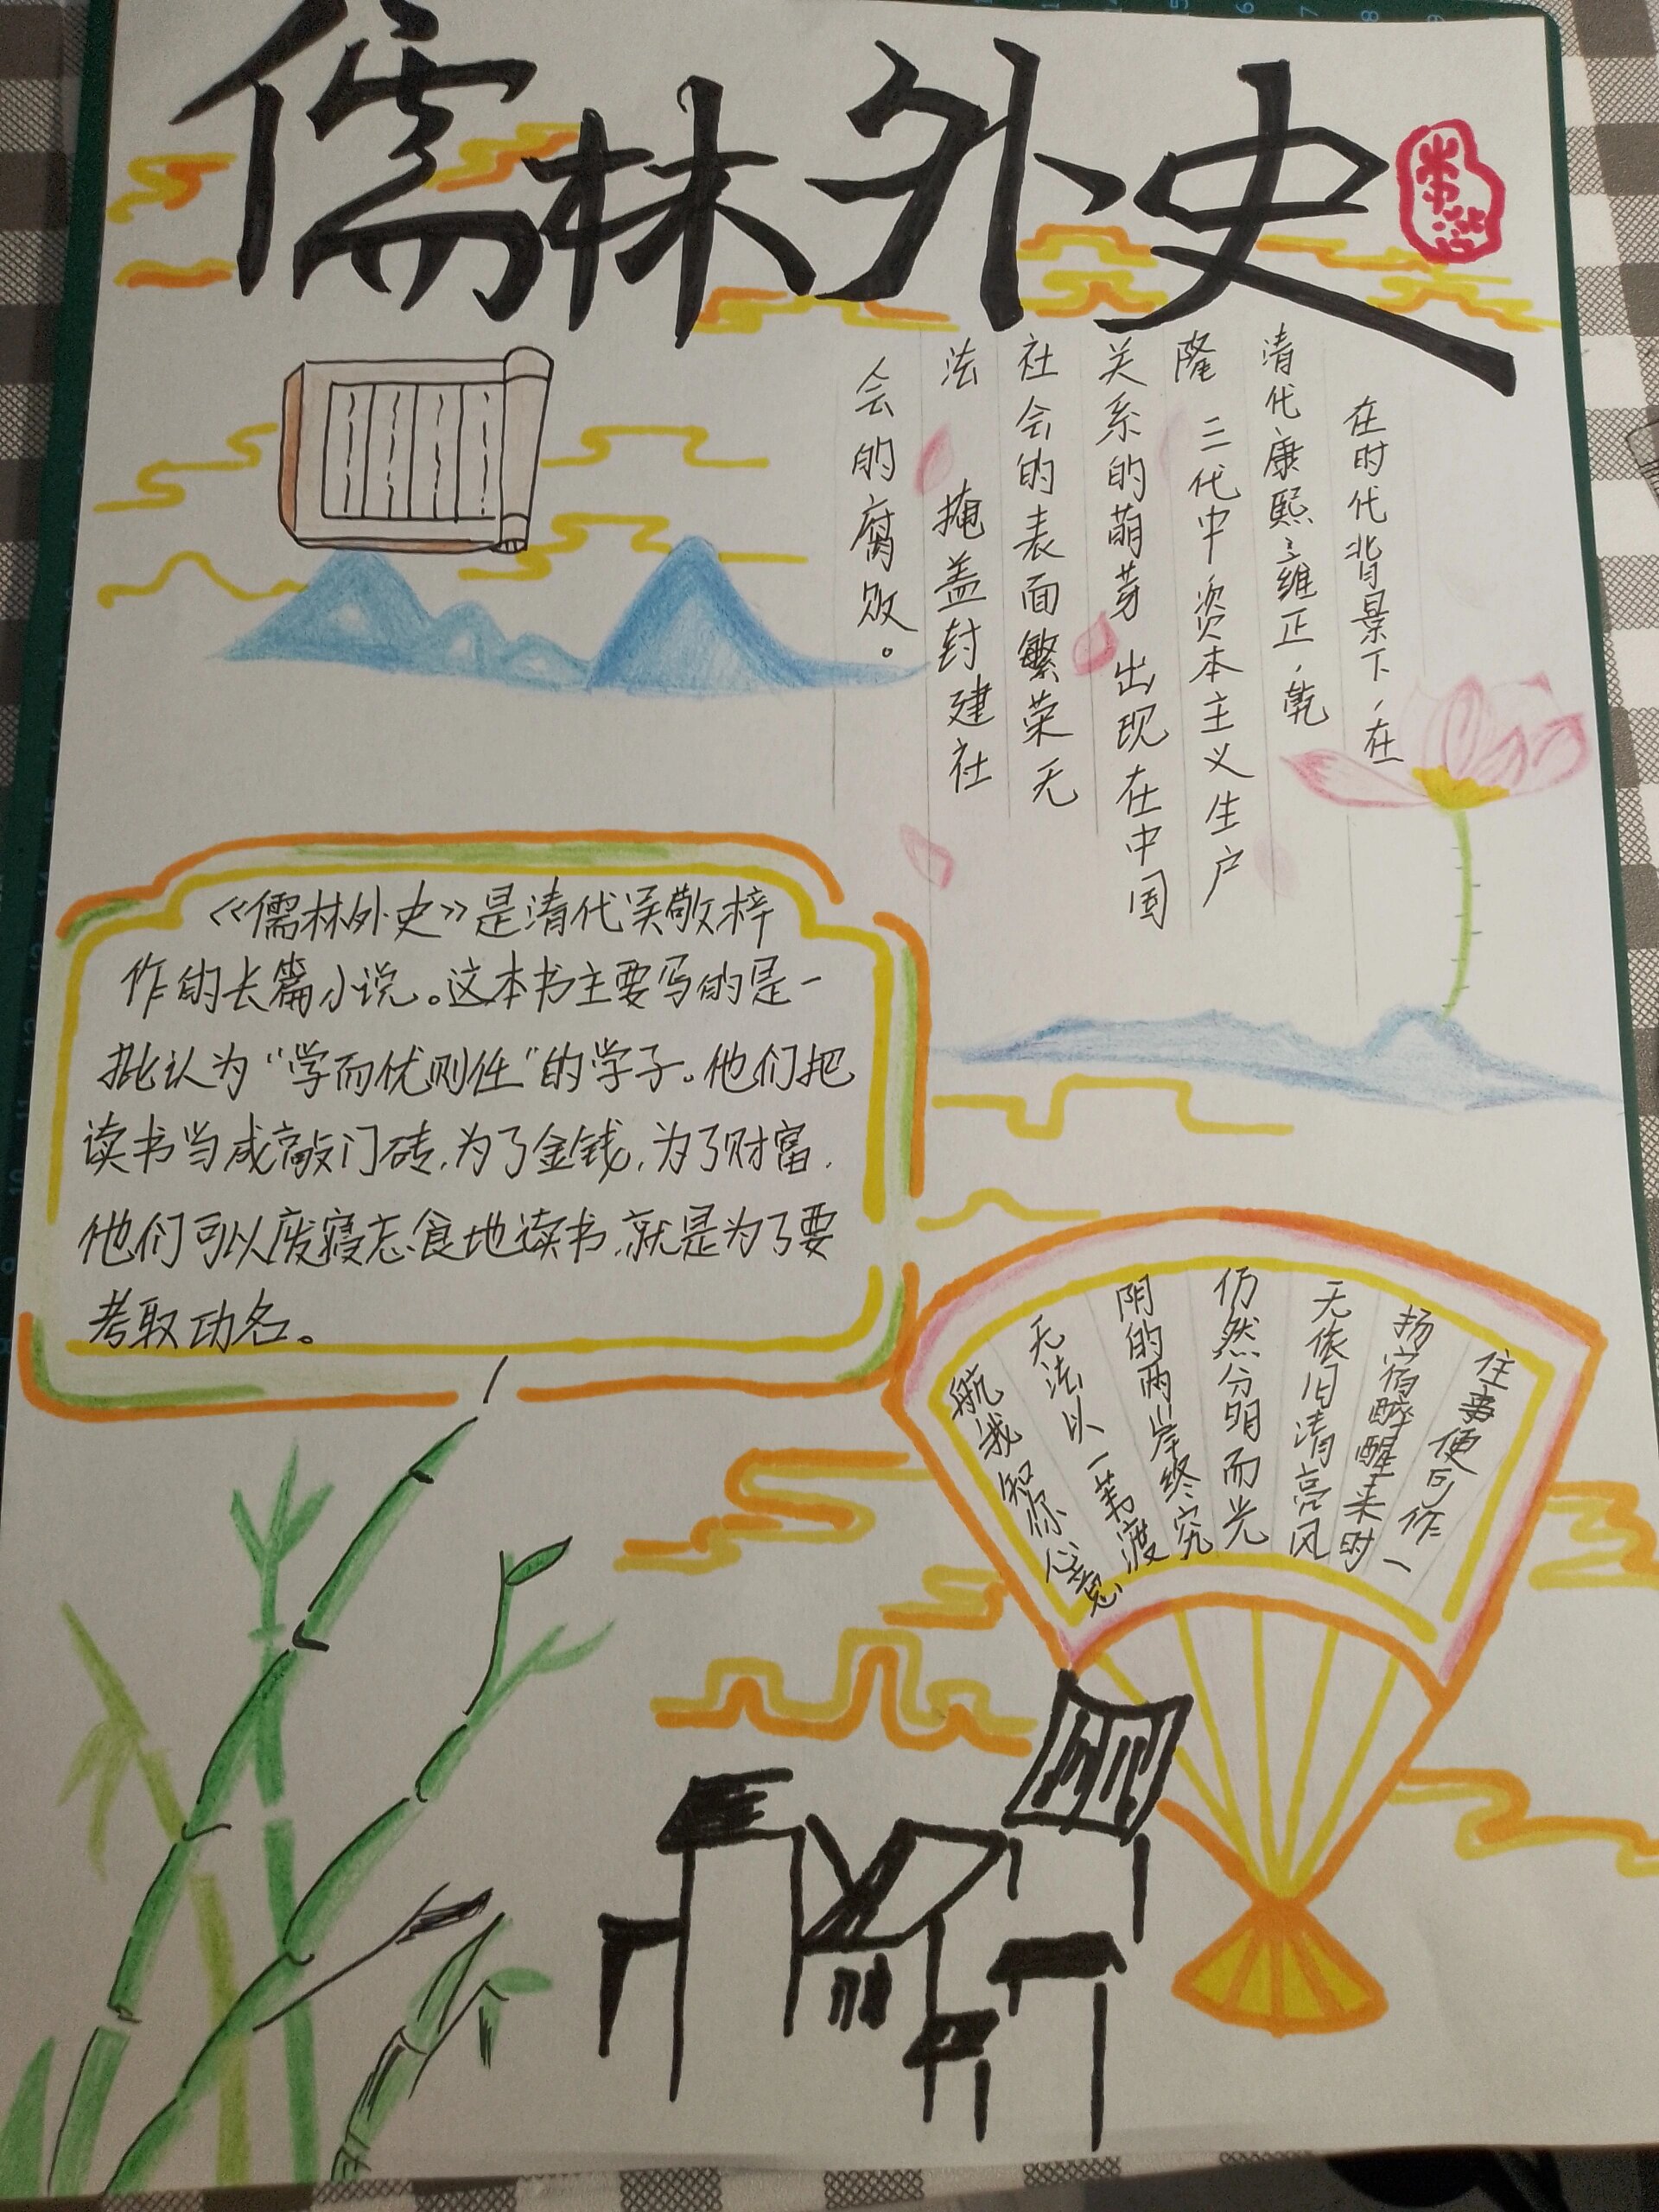 儒林外史
在时代背景下，在
清代康熙、雍正，乾
隆三代中资本主义生户
关系的萌芽出现在中国
社会的表面繁荣无
法掩盖封建社
会的腐败。
《儒林外史》是清代吴敬梓
作的长篇小说。这本书主要写的是一
批认为“学而优则仕”的学子。他们把
读书当成敲门砖，为了金钱，为了财富，
他们可以废寝忘食地读书，就是为了要
考取功名。
往事便可作一
场宿醉醒来时
无依旧清亮风
仍然分明而光
阴的两岸终究
无法以一苇渡
航我知你心意